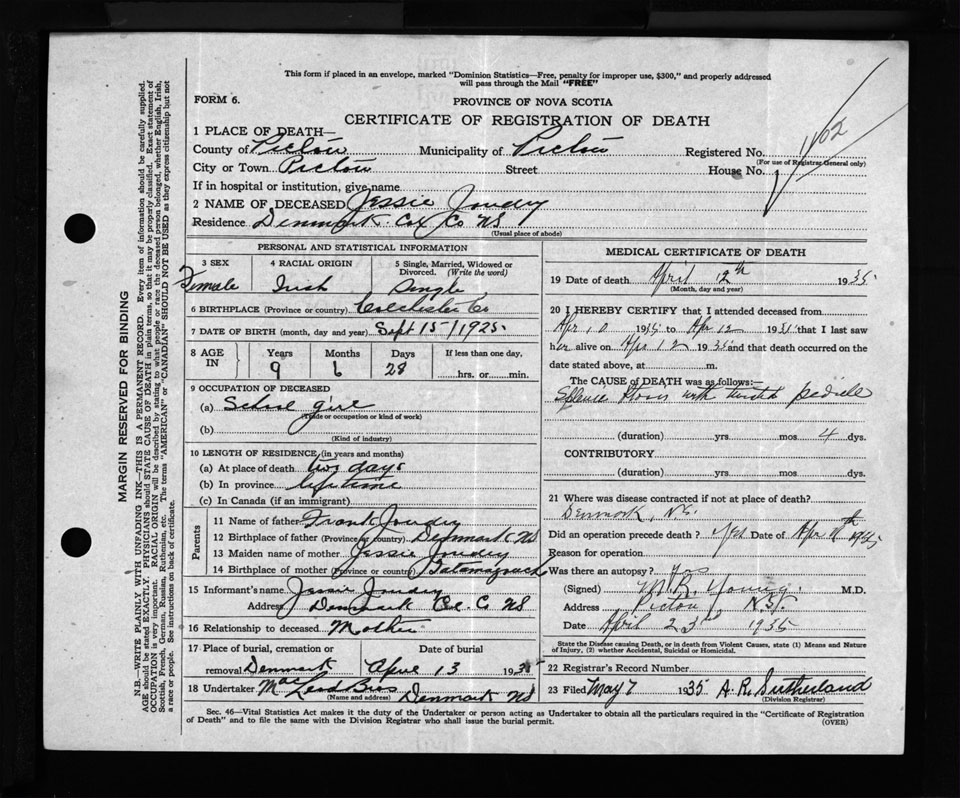 This form if placed in an envelope, marked "Dominion Statistics—Free, penalty for improper use, $300," and properly addressed
will pass through the Mail "FREE"
FORM 6.
PROVINCE OF NOVA SCOTIA
CERTIFICATE OF REGISTRATION OF DEATH
1 PLACE OF DEATH—
County of Pictou Municipality of Pictou Registered No. 1162
(For use of Registrar General only)
City or Town Pictou Street House No.
If in hospital or institution, give name
2 NAME OF DECEASED Jessie Joudry
Residence Denmark Col Co NS
(Usual place of abode)
PERSONAL AND STATISTICAL INFORMATION
3 SEX 4 RACIAL ORIGIN 5 Single, Married, Widowed or
Divorced. (Write the word)
Female Irish Single
6 BIRTHPLACE (Province or country) Colchester Co
7 DATE OF BIRTH (month, day and year) Sept 15/1925
8 AGE IN Years Months Days If less than one day,
9 6 28 hrs. or min.
9 OCCUPATION OF DECEASED
(a) School girl
(Trade or occupation or kind of work)
(b)
(Kind of industry)
10 LENGTH OF RESIDENCE (in years and months)
(a) At place of death two days
(b) In province lifetime
(c) In Canada (if an immigrant)
Parents
11 Name of father Frank Joudry
12 Birthplace of father (Province or country) Denmark NS
13 Maiden name of mother Jessie Joudry
14 Birthplace of mother (Province or country) Tatamagouch
15 Informant's name Jessie Joudry
Address Denmark Col. Co NS
16 Relationship to deceased Mother
17 Place of burial, cremation or Date of burial
removal Denmark April 13 1935
18 Undertaker Bros Denmark NS
(Name and address)
MEDICAL CERTIFICATE OF DEATH
19 Date of death April 12th 1935
(Month, day and year)
20 I HEREBY CERTIFY that I attended deceased from
Apr 10 1935 to Apr 12 1935 that I last saw
her alive on Apr 12 1935 and that death occurred on the
date stated above, at m.
The CAUSE of DEATH was as follows:—
with pedicle
(duration) yrs mos 4 dys.
CONTRIBUTORY
(duration) yrs mos dys.
21 Where was disease contracted if not at place of death?
Denmark, N.S.
Did an operation precede death? Yes Date of Apr 11th 1935
Reason for operation
Was there an autopsy?
(Signed) M.R. Young M.D.
Address Pictou N.S.
Date April 23 1935
State the Disease causing Death, or in death from Violent Causes, state (1) Means and Nature
of Injury, (2) whether Accidental, Suicidal or Homicidal.
22 Registrar's Record Number
23 Filed May 7 1935 A. R. Sutherland
(Division Registrar)
Sec. 46—Vital Statistics Act makes it the duty of the Undertaker or person acting as Undertaker to obtain all the particulars required in the "Certificate of Registration
of Death" and to file the same with the Division Registrar who shall issue the burial permit.
(OVER)
MARGIN RESERVED FOR BINDING
N.B.—WRITE PLAINLY WITH UNFADING INK—THIS IS A PERMANENT RECORD. Every item of information should be carefully supplied.
AGE should be stated EXACTLY. PHYSICIANS should STATE CAUSE OF DEATH in plain terms, so that it may be properly classified. Exact statement of
OCCUPATION is very important. RACIAL ORIGIN will be described by stating to what people or race the deceased person belonged, whether English, Irish,
Scottish, French, German, Russian, Ruthenian, etc. The terms "AMERICAN" or "CANADIAN" SHOULD NOT BE USED as they express citizenship but not
a race or people. See instructions on back of certificate.